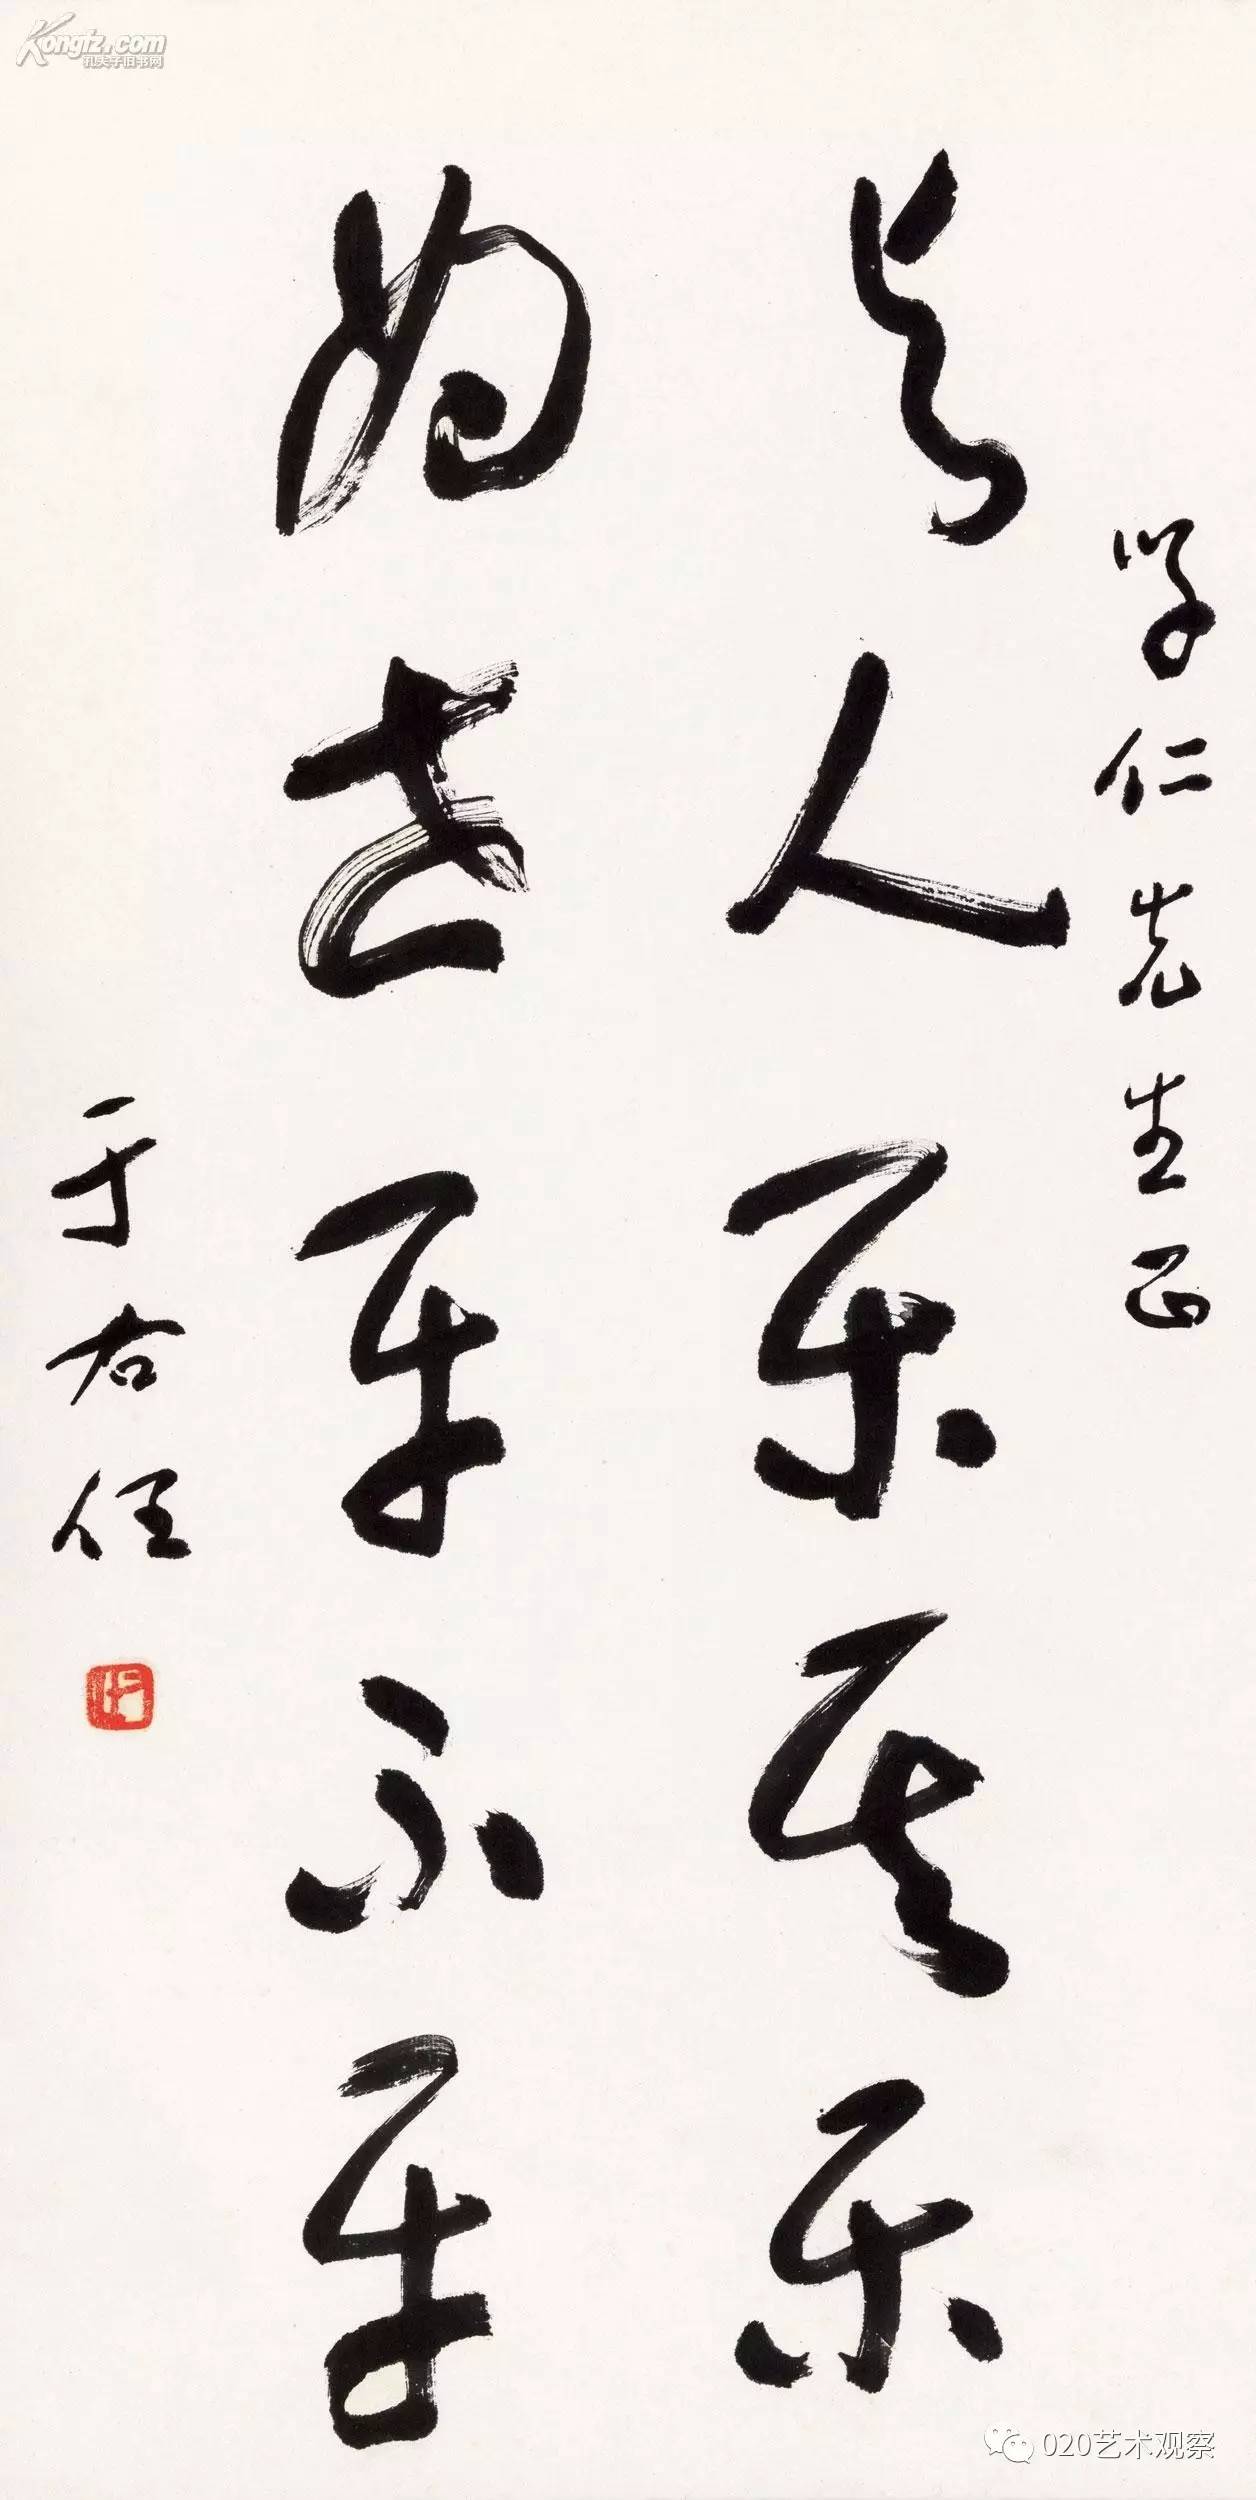 Kongfz.com
孔夫子旧书网
学仁先生正
与人乐其乐
为世平不平
于右任
020艺术观察